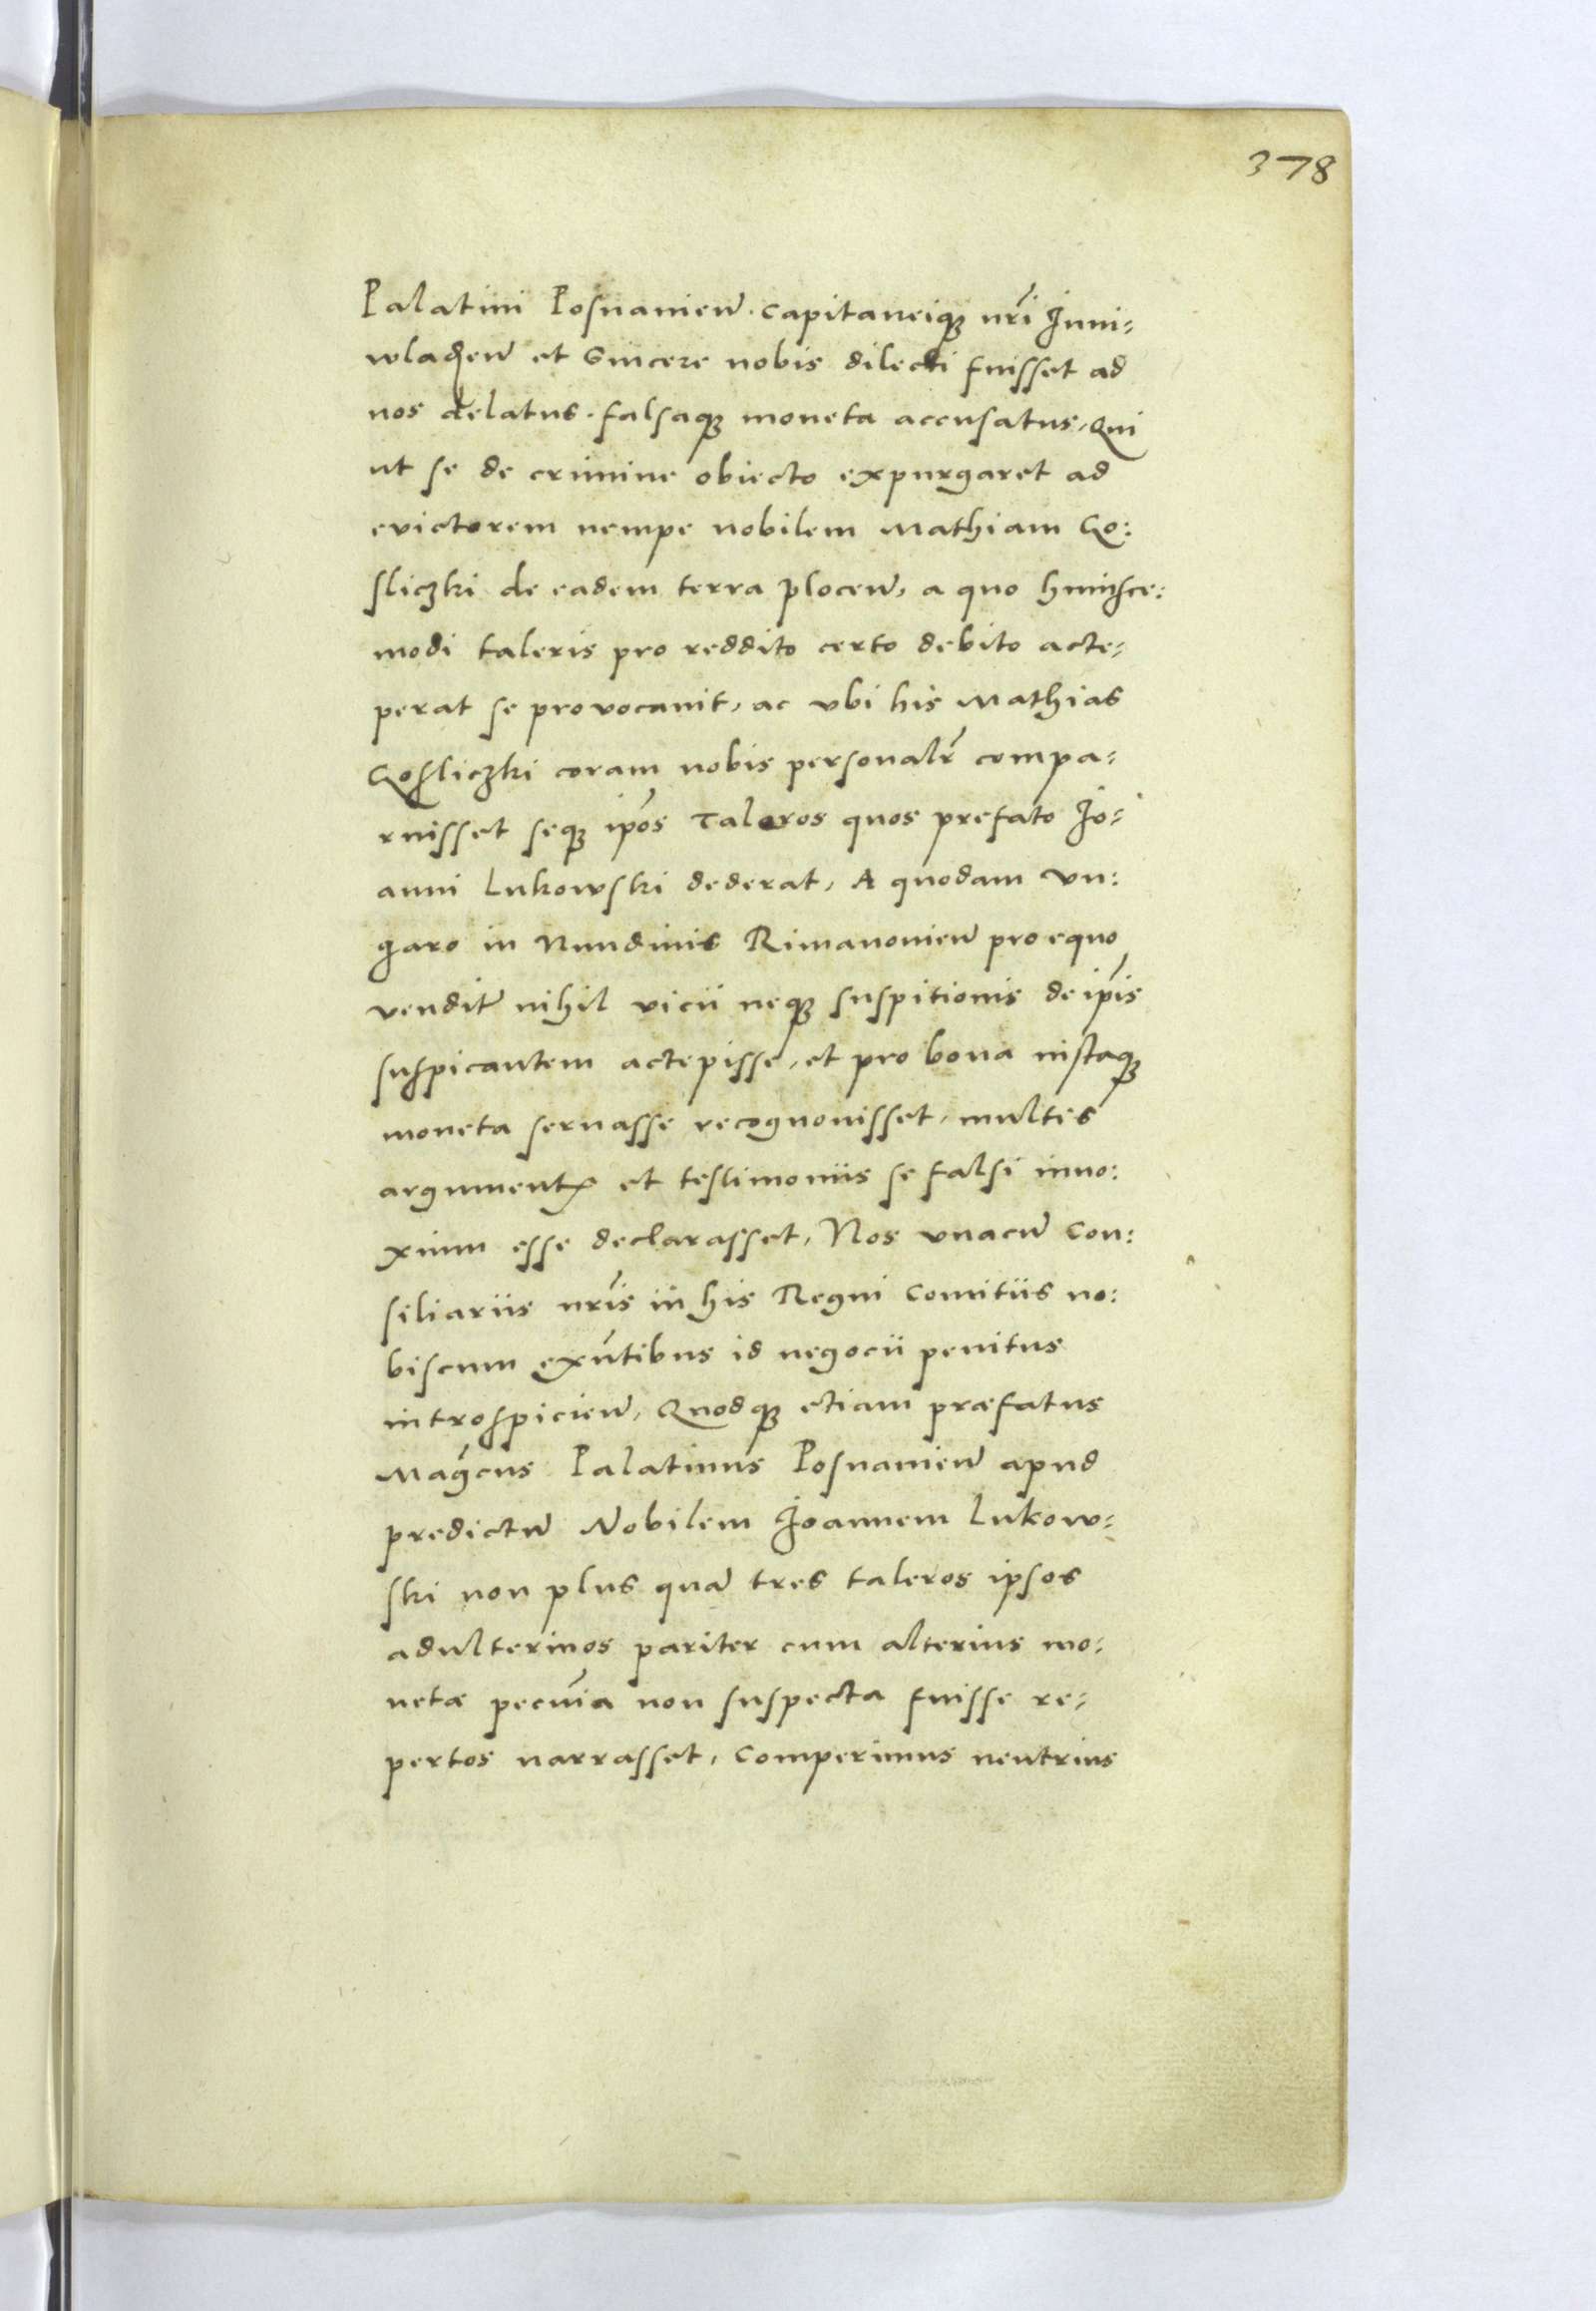 378
Palatini Posnanień. Capitaneiq3 nrĩ Juni-
wladień et Sincere nobis dilecti fuisset ad
nos delatus. falsaq3 moneta accusatus, Qui
ut se de crimine obiecto expurgaret ad
evictorem nempe nobilem Mathiam Go:
sliczki de eadem terra Plocen̄, a quo huiusce:
modi taleris pro reddito certo debito acce-
perat se provocauit, ac vbi his Mathias
Gosliczki coram nobis personalr̃ compa-
ruisset seq3 ip̃os Taleros quos prefato Jo-
anni Lukowski dederat, A quodam Vn:
garo in Nundinis Rimanonień pro equo
vendit̃ nihil vicii neq3 suspitionis de ip̃is
suspicantem accepisse, et pro bona iustaq3
moneta seruasse recognouisset, multis
argument̃ et testimoniis se falsi inno:
xium esse declarasset, Nos vnacū Con:
siliariis nrĩs in his Regni Comitiis no:
biscum exñtibus id negocii penitus
introspicień, Quodq3 etiam præfatus
Mag̃cus Palatinus Posnanień apud
predictū Nobilem Joannem Lukow-
ski non plus quā tres taleros ipsos
adulterinos pariter cum alterius mo:
netæ pecuñia non suspecta fuisse re-
pertos narrasset, Comperimus neutrius